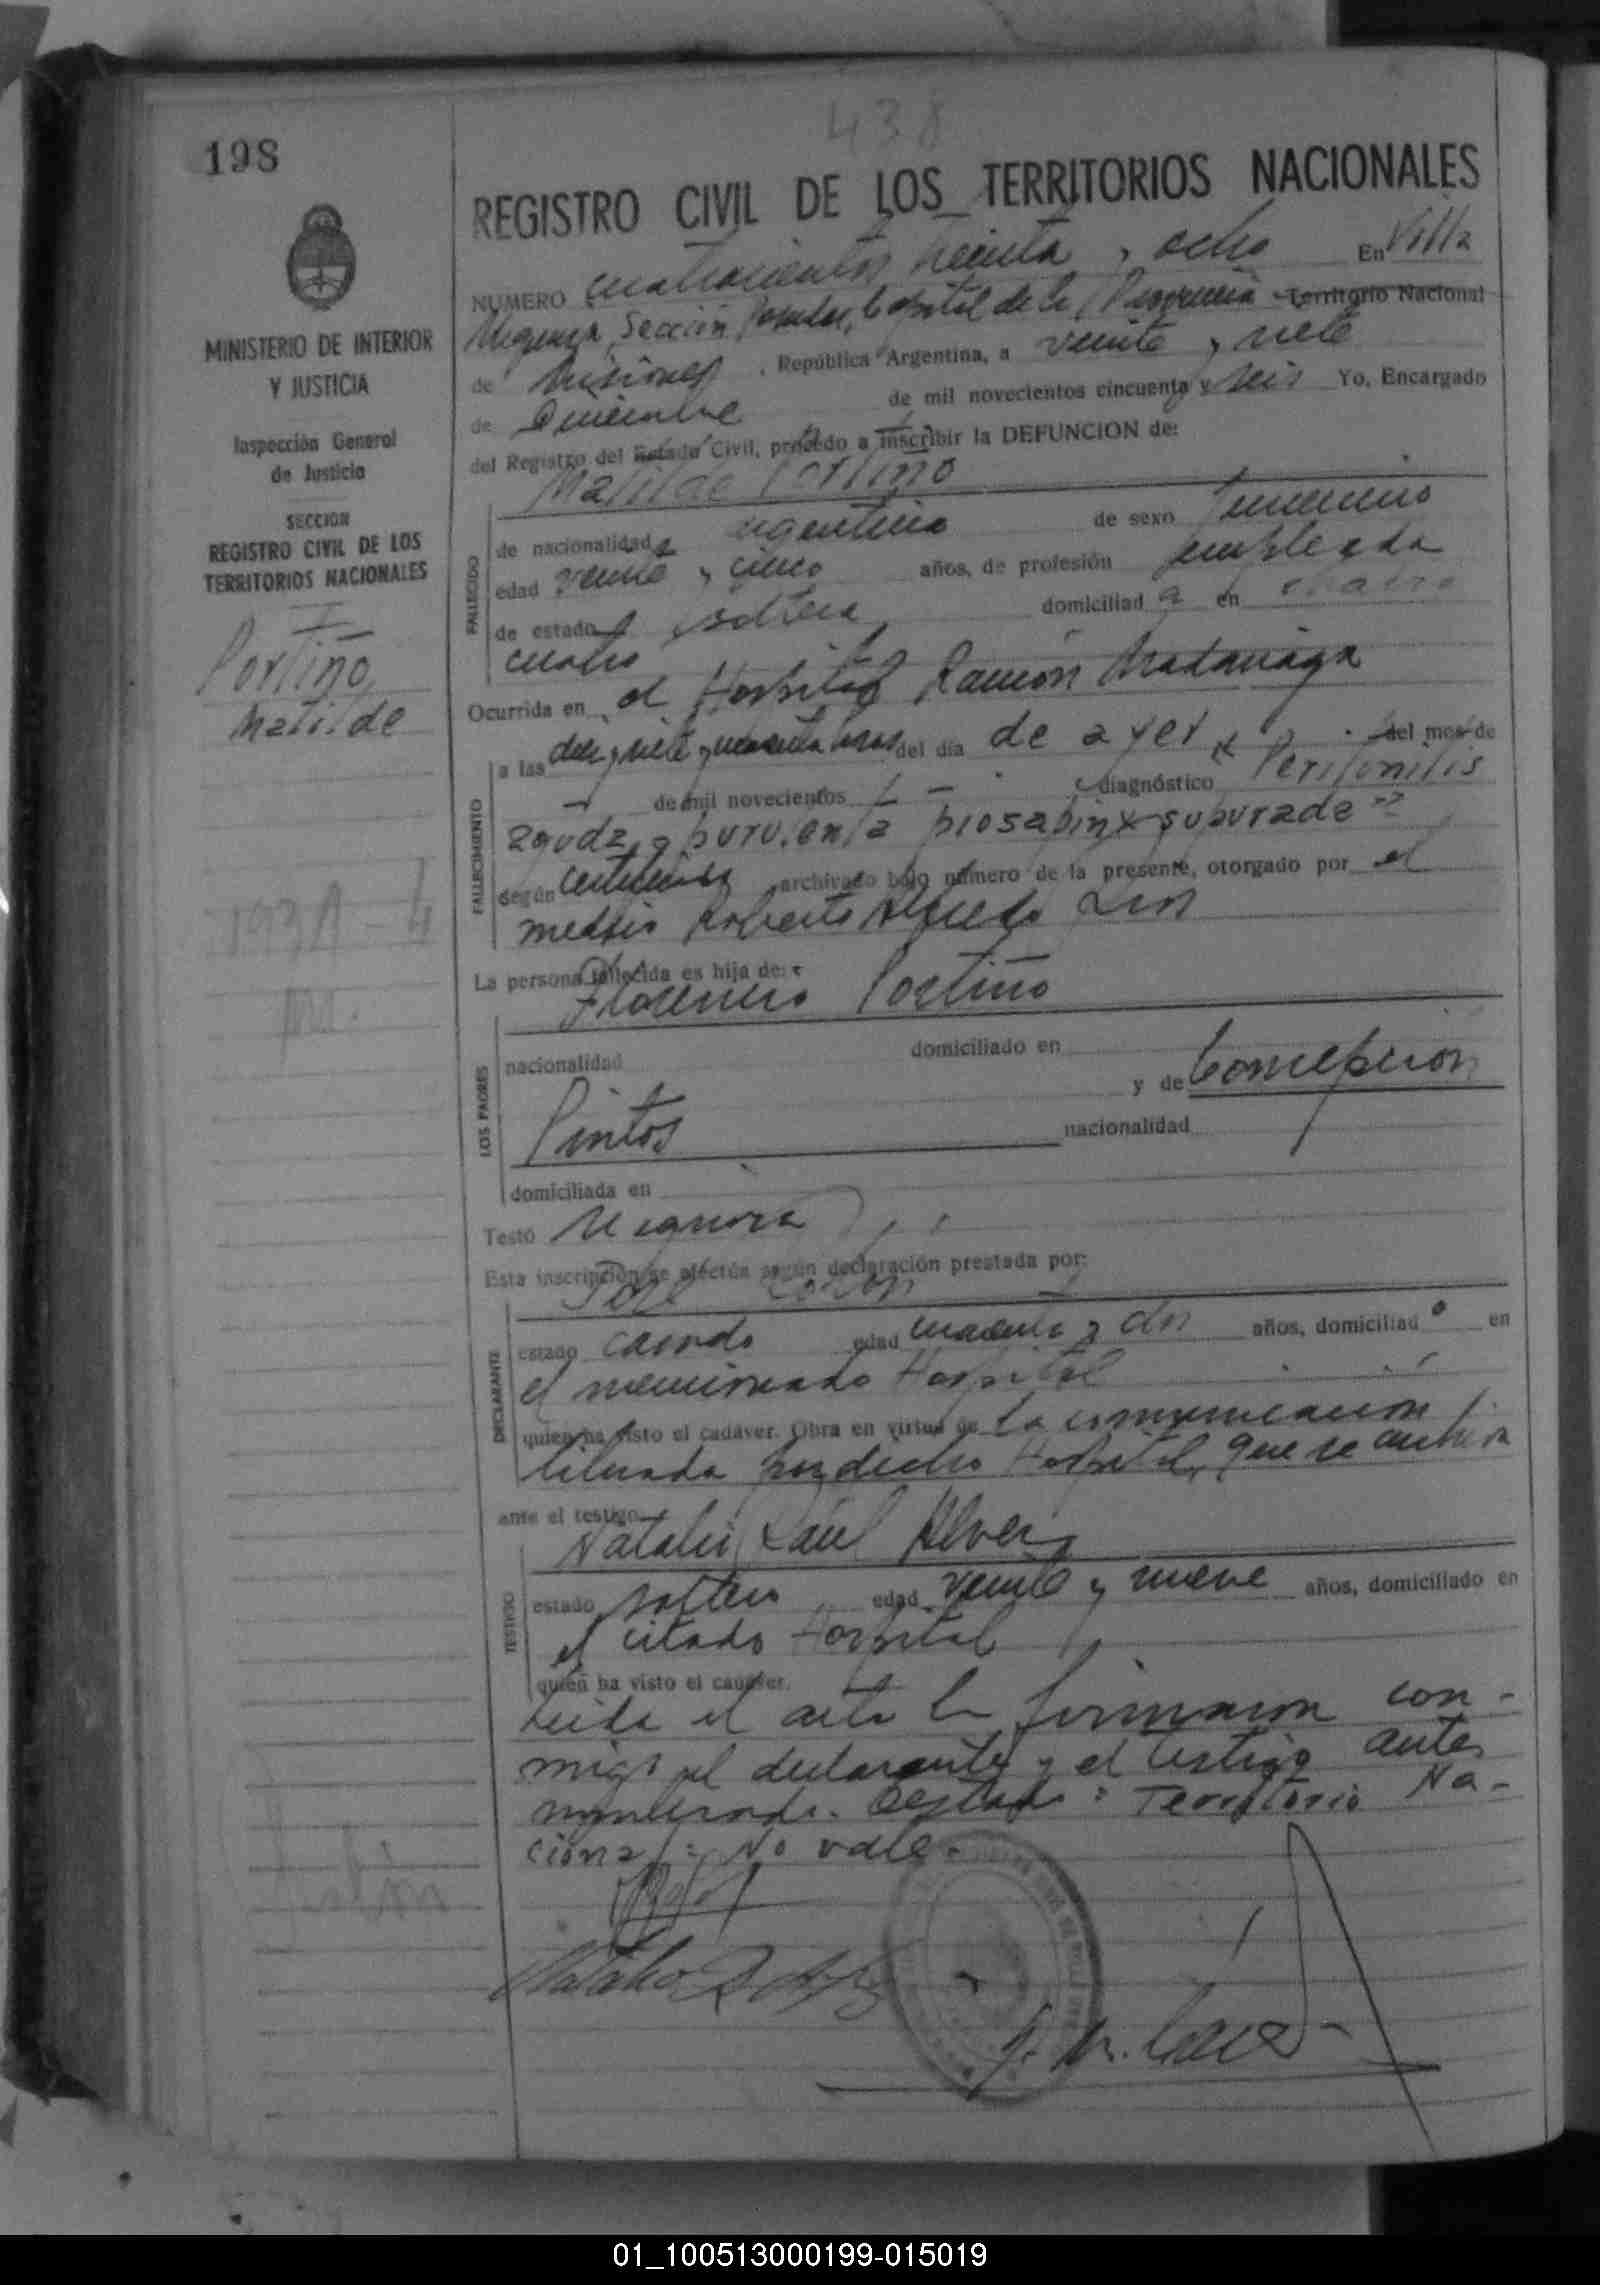 438
198
REGISTRO CIVIL DE LOS TERRITORIOS NACIONALES
NUMERO cuatrocientos treinta y ocho En Villa
Urquiza, Sección Posadas, Capital de la Provincia Territorio Nacional
de Misiones, República Argentina, a veinte y siete
de Diciembre de mil novecientos cincuenta y seis Yo, Encargado
del Registro del Estado Civil, procedo a inscribir la DEFUNCION de:
Matilde Portiño
MINISTERIO DE INTERIOR
Y JUSTICIA
Inspección General
de Justicia
SECCION
REGISTRO CIVIL DE LOS
TERRITORIOS NACIONALES
Portiño
Matilde
FALLECIDO
de nacionalidad argentina de sexo femenino
edad veinte y cinco años, de profesión empleada
de estado soltera domiciliad a en
cuatro
Ocurrida en el Hospital Ramón Madariaga
FALLECIMIENTO
a las diez y siete y horas del día de ayer del mes de
de mil novecientos diagnóstico Peritonitis
aguda purulenta
según certificado archivado bajo número de la presente, otorgado por el
medico Roberto Alfredo
La persona fallecida es hija de:
Florencio Portiño
LOS PADRES
nacionalidad domiciliado en
y de Concepción
Pintos nacionalidad
domiciliada en
Testó
Esta inscripción se efectúa según declaración prestada por:
José
DECLARANTE
estado casado edad cuarenta y dos años, domiciliad o en
el mencionado Hospital
quien ha visto el cadáver. Obra en virtud de la comunicación
librada por dicho Hospital, que se archiva
ante el testigo
Natalio Raúl
TESTIGO
estado soltero edad veinte y nueve años, domiciliado en
el citado Hospital
quien ha visto el cadáver.
Leída el acta la firmaron con-
migo el declarante y el testigo antes
nombrado. Testado: Territorio Na-
cional: No vale.
01_100513000199-015019